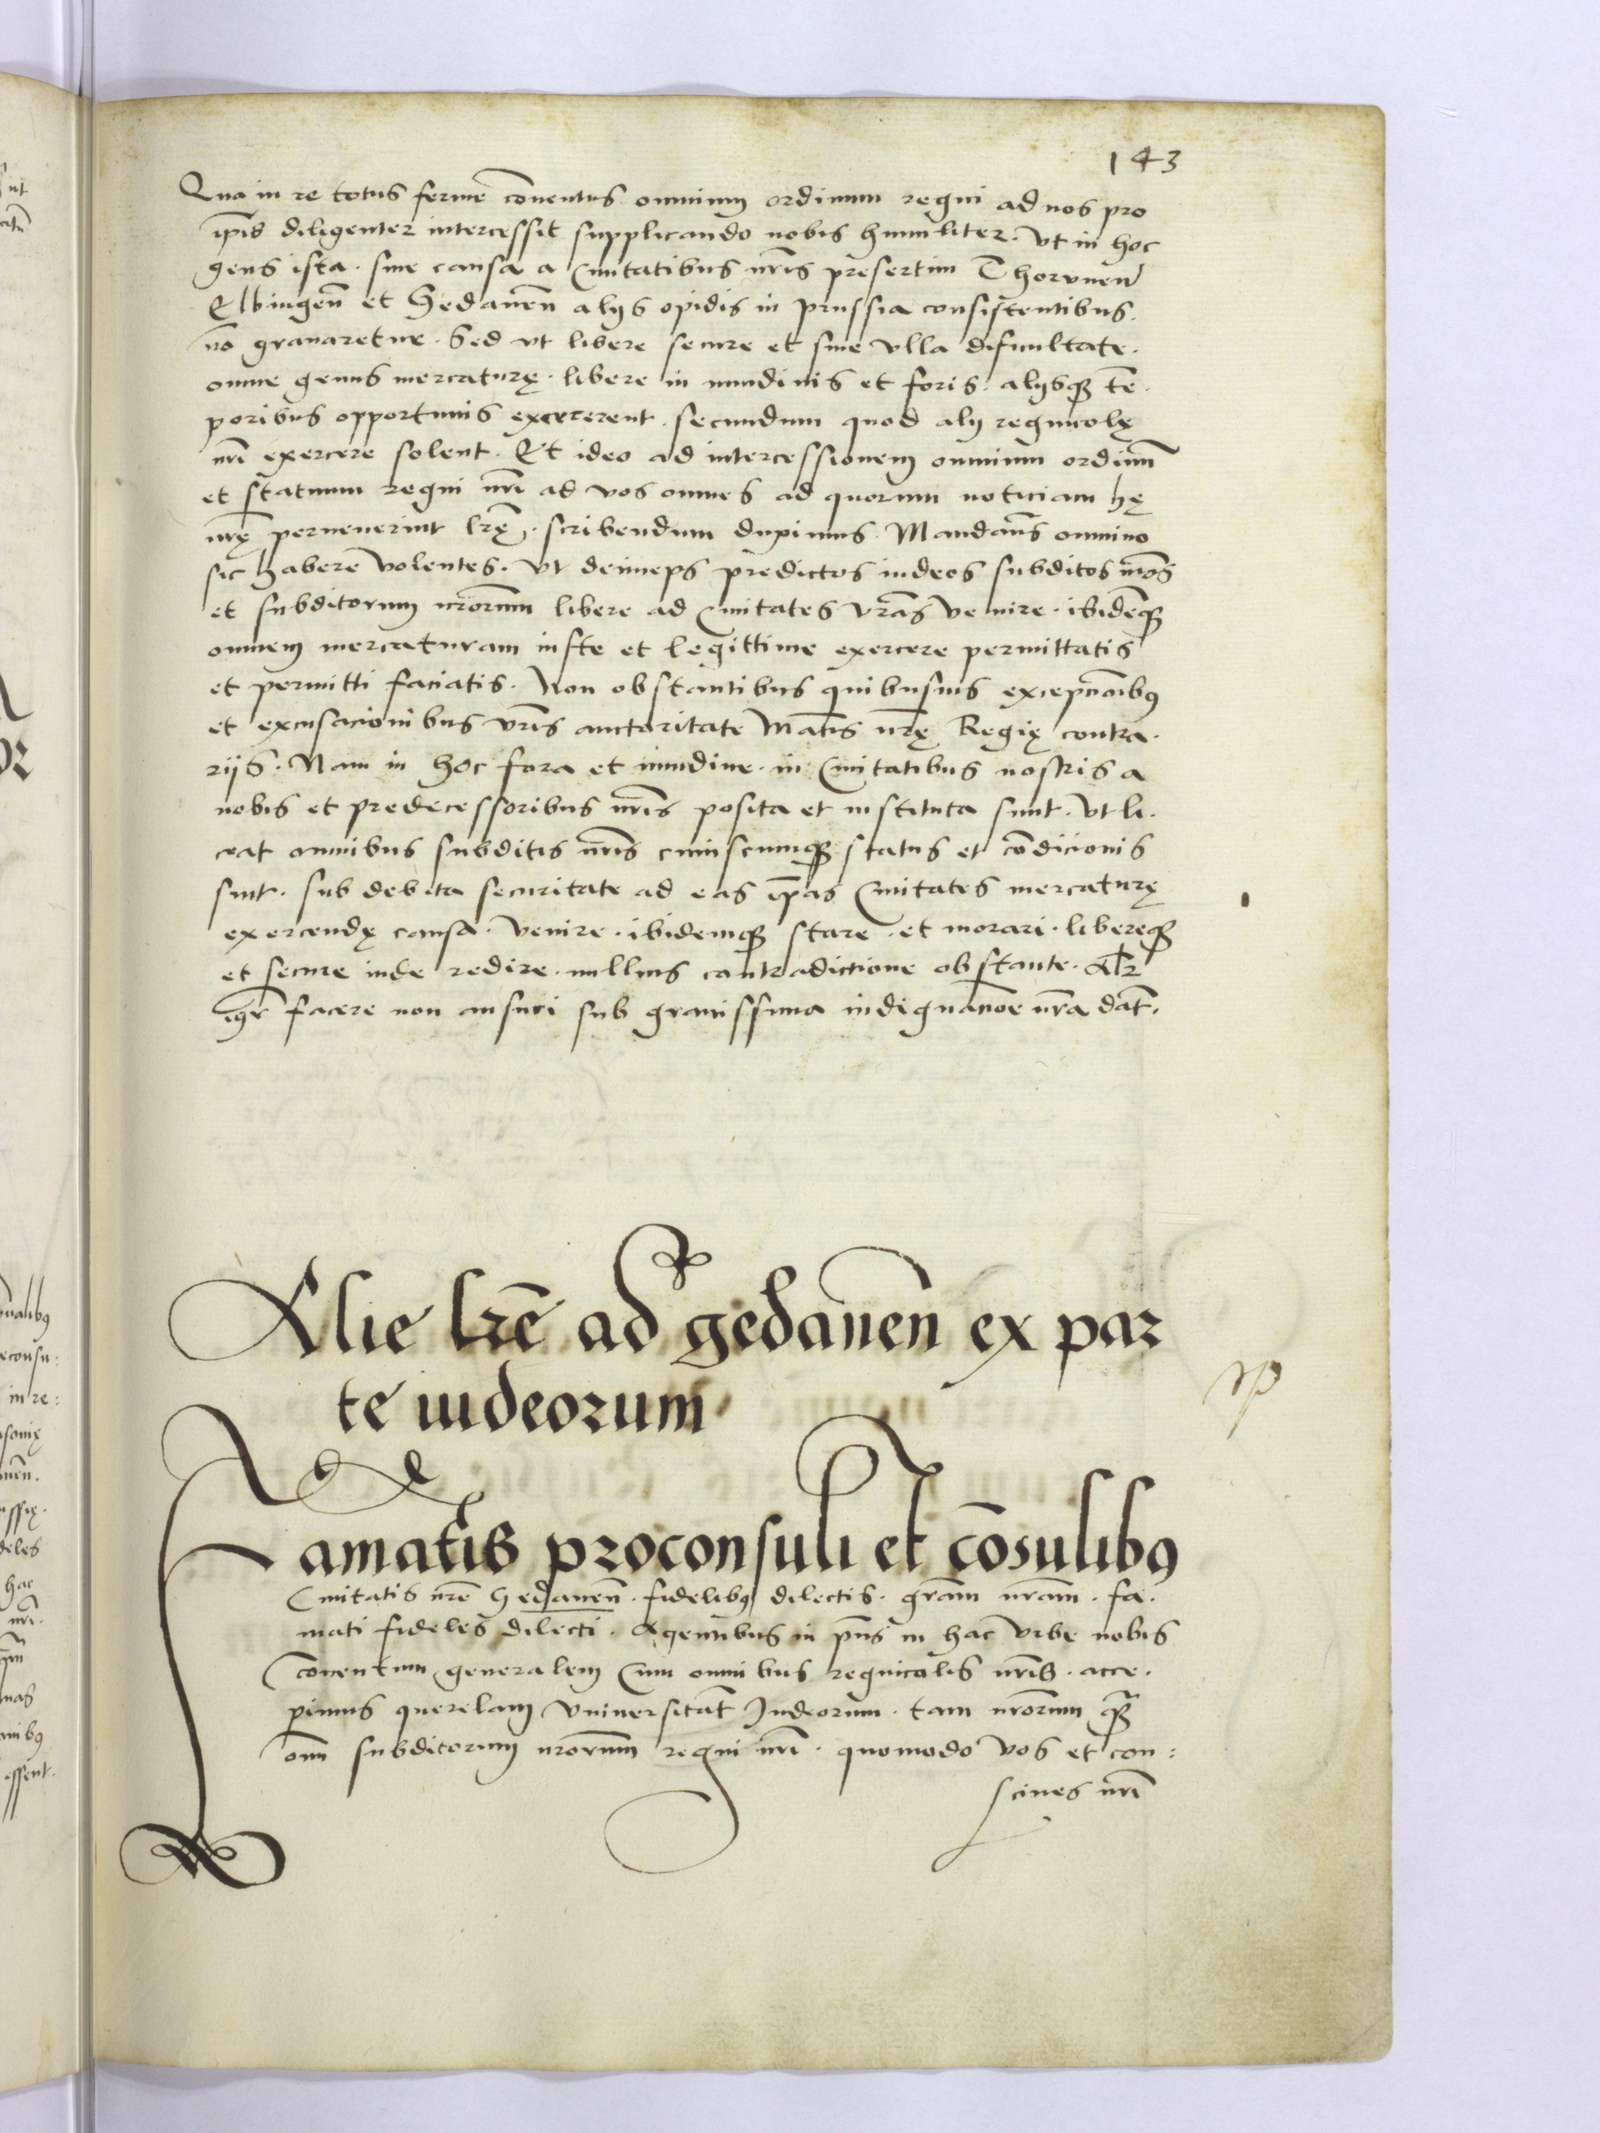 143
Qua in re totus ferme cōventus omnium ordinum regni ad nos pro
ip̄is diligenter intercessit supplicando nobis humiliter. Vt in hoc
gens ista. sine causa a Civitatibus nr̄is presertim Thorunen̄
Elbingen̄ et Gedanen̄ alijs opidis in prussia consistentibus.
nō gravaretur. Sed vt libere secure et sine vlla dificultate.
omne genus mercaturę. libere in nundinis et foris. alijsq₃ tē.
poribus opportunis exercerent. secundum quod alij regnicolę
nr̄i exercere solent. Et ideo ad intercessionem omnium ordinū
et statuum regni nr̄i ad vos omnes ad quorum noticiam hę
nr̄ę pervenerint lr̄ę. scribendum duximus. Mandan̄s omnino
sic habere volentes. Vt deinceps predictos iudeos subditos nr̄os
et subditorum nr̄orum libere ad Civitates vr̄as venire. ibidēq₃
omnem mercaturam iuste et legittime exercere permittatis
et permitti faciatis. Non obstantibus quibusvis excepcōnibꝰ
et excusacionibus vr̄is auctoritate Mātis nr̄ę Regię contra.
rijs. Nam in hoc fora et nundine. in Civitatibus nostris a
nobis et predecessoribus nr̄is posita et instituta sunt. Vt li.
ceat omnibus subditis nr̄is cuiuscumq₃ status et cōdicionis
sint. sub debita securitate ad eas ip̄as Civitates mercaturę
exercendę causa. venire. ibidemq₃ stare. et morari. libereq₃
et secure inde redire. nullius contradictione obstante. Alr̄
igr̄ facere non ausuri sub gravissima indignacōne nr̄a dat̄.
Alie lr̄e ad gedanen̄ ex par
te iudeorum
Famatis proconsuli et cōsulibꝰ
Civitatis nr̄e Gedanen̄. fidelibꝰ dilectis. grām nr̄am. fa.
mati fideles dilecti. Agentibus in pn̄s in hac vrbe nobis
Conventum generalem Cum omnibus regnicolis nr̄is. acce.
pimus querelam Vniversitat̄ Iudeorum. tam nr̄orum q₃
om̄ subditorum nr̄orum regni nr̄i. quomodo vos et con:
scives nr̄i